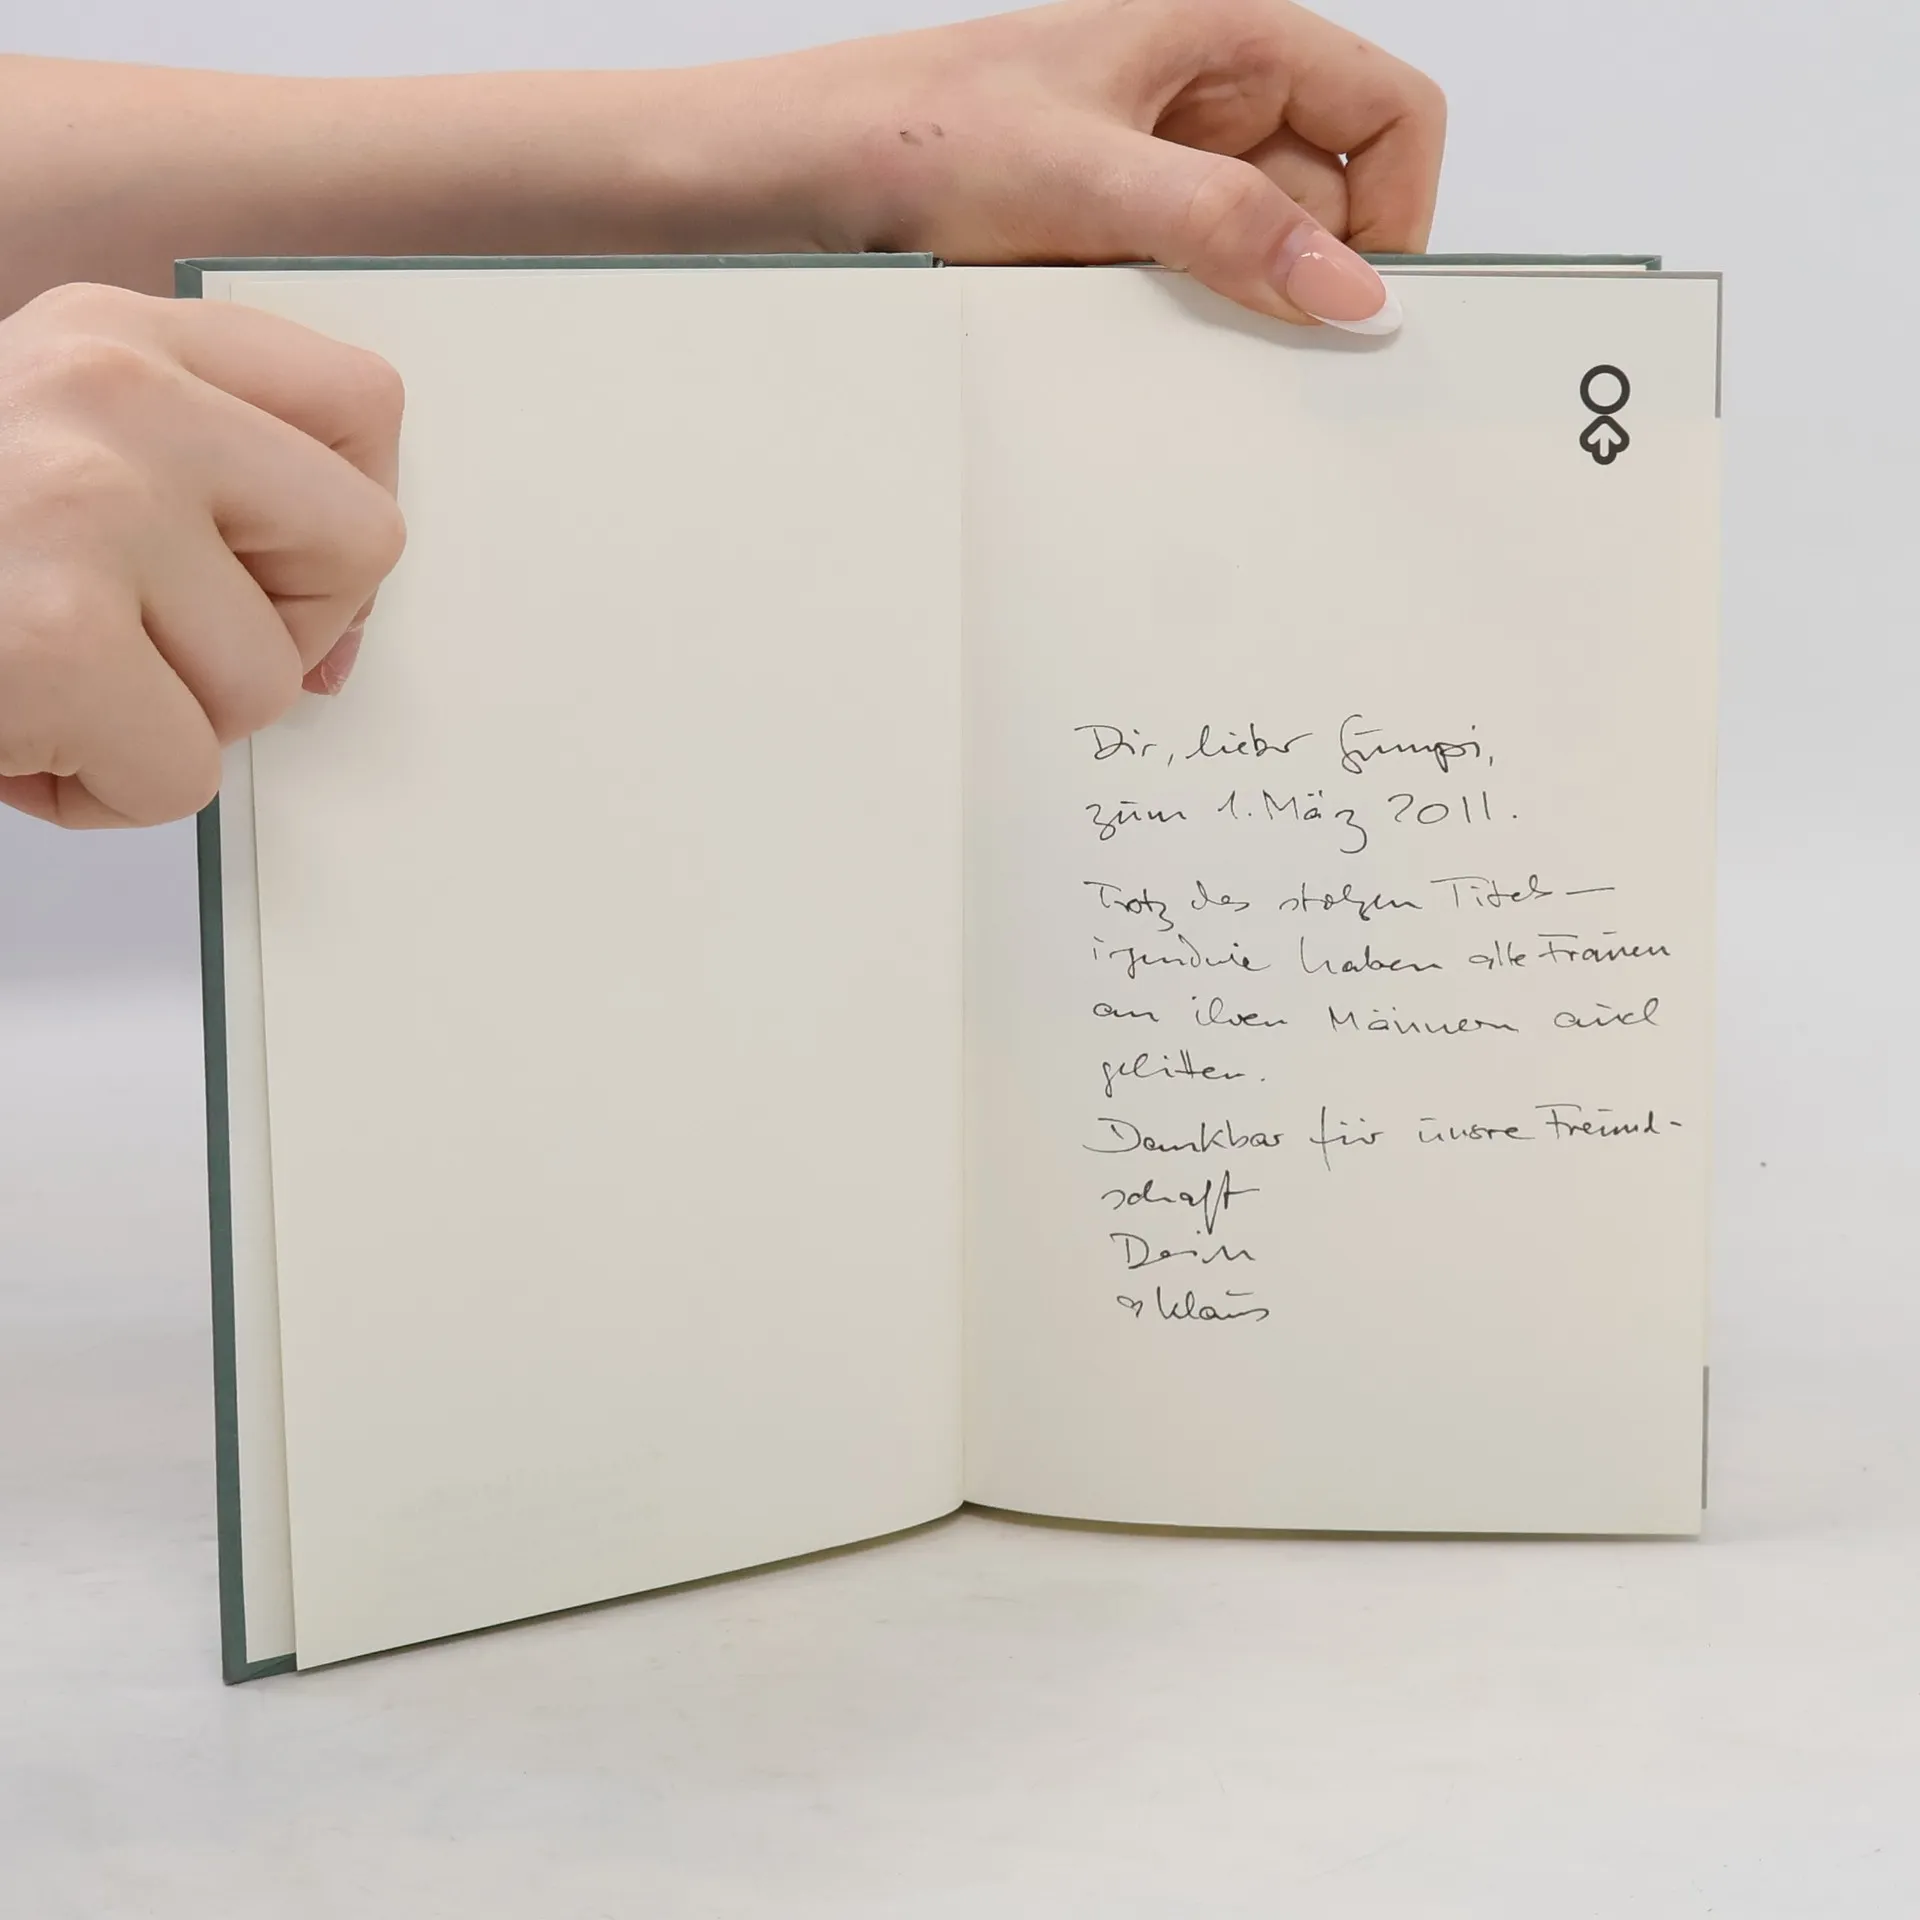 Dir, lieber Gumpi,
zum 1. März 2011.
Trotz des stolzen Titels —
irgendwie haben alle Frauen
an ihren Männern auch
gelitten.
Dankbar für unsre Freund-
schaft
Dein
Klaus